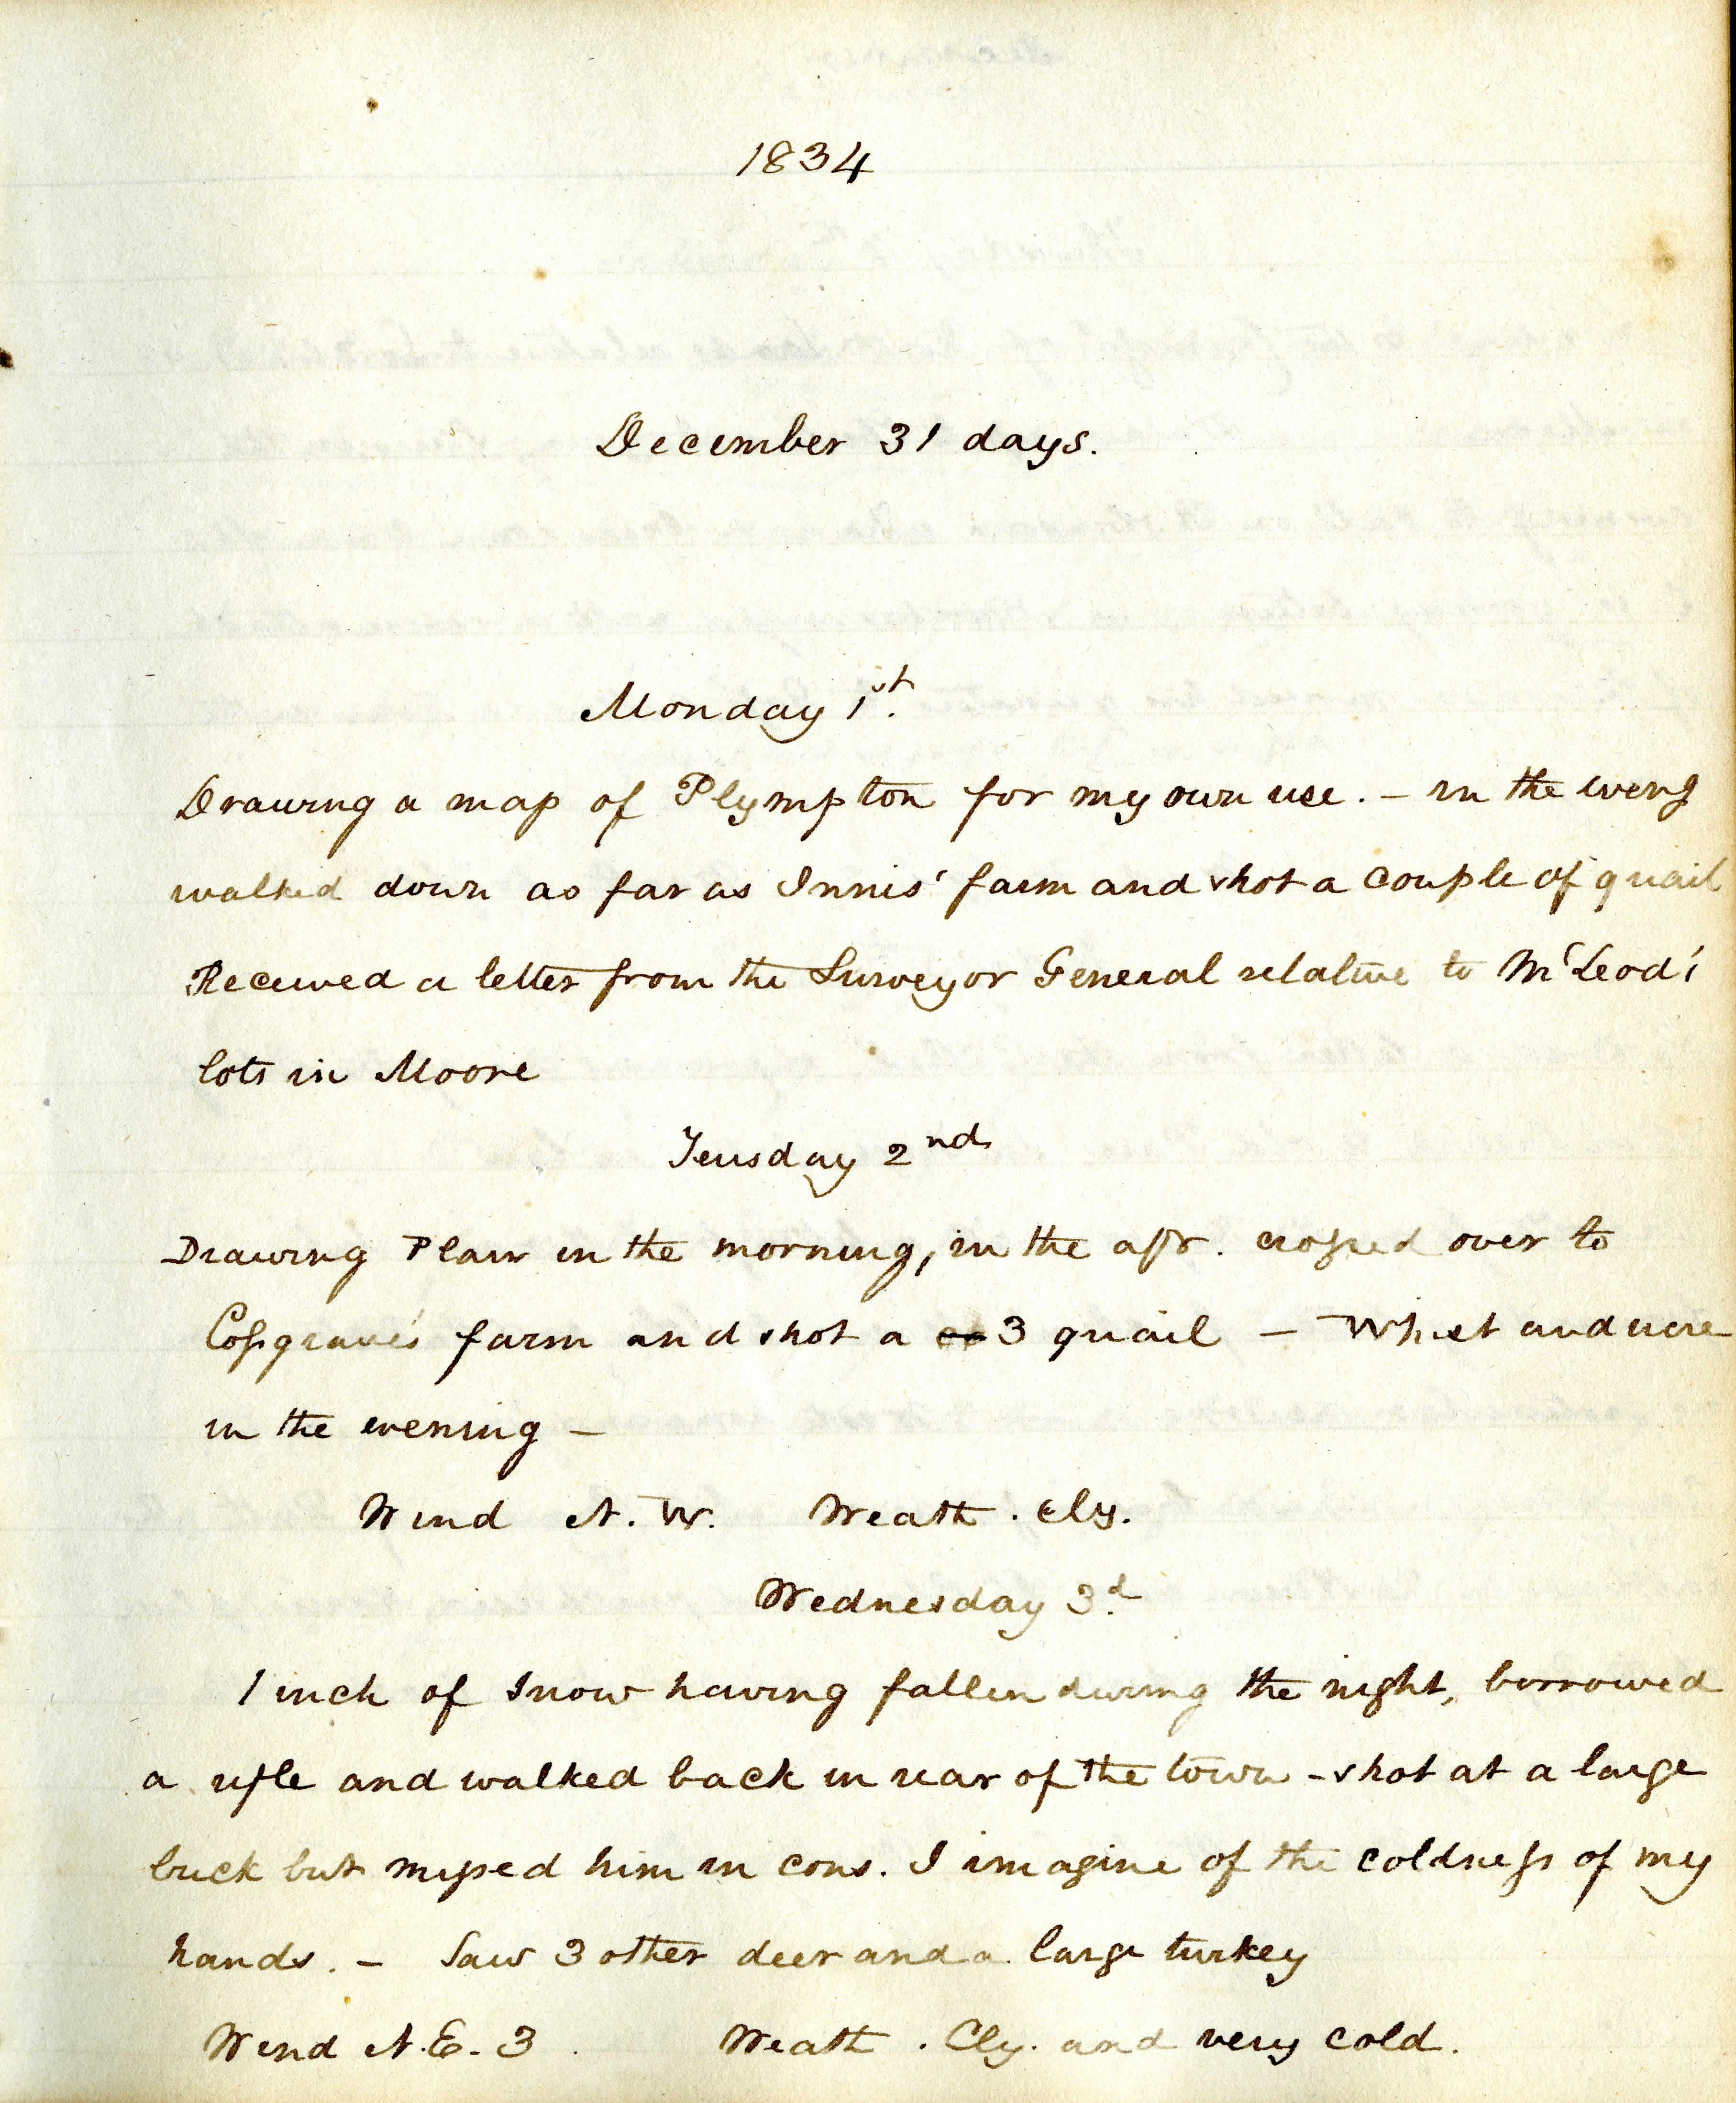 1834
December 31 days.
Monday 1st.
Drawing a map of Plympton for my own use. – in the eveng
walked down as far as Innis' farm and shot a couple of quail
Received a letter from the Surveyor General relative to McLeod's
lots in Moore
Teusday 2nd
Drawing Plan in the morning, in the aftr. crossed over to
Cossgrave's farm and shot a 3 quail – Whist and
in the evening –
Wind N.W. Weath. Cly.
Wednesday 3d.
1 inch of snow having fallen during the night, borrowed
a rifle and walked back in rear of the town – shot at a large
buck but missed him in cons. I imagine of the coldness of my
hands. – Saw 3 other deer and a large turkey
Wind N.E. 3 Weath. Cly. and very cold.